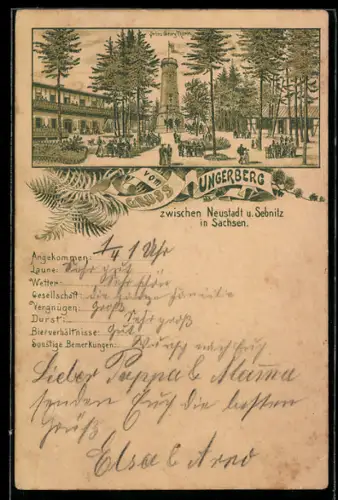 Prinz Georg Thurm.
GRUSS VOM UNGERBERG
zwischen Neustadt u. Sebnitz
in Sachsen.
Angekommen: 1/4 1 Uhr
Laune: Sehr gut
Wetter: Sehr schön
Gesellschaft: die ganze Familie
Vergnügen: Groß
Durst: Sehr groß
Bierverhältnisse: Gut
Sonstige Bemerkungen:
Lieber Pappa & Mama
senden Euch die besten
Grüße
Elsa & Arno